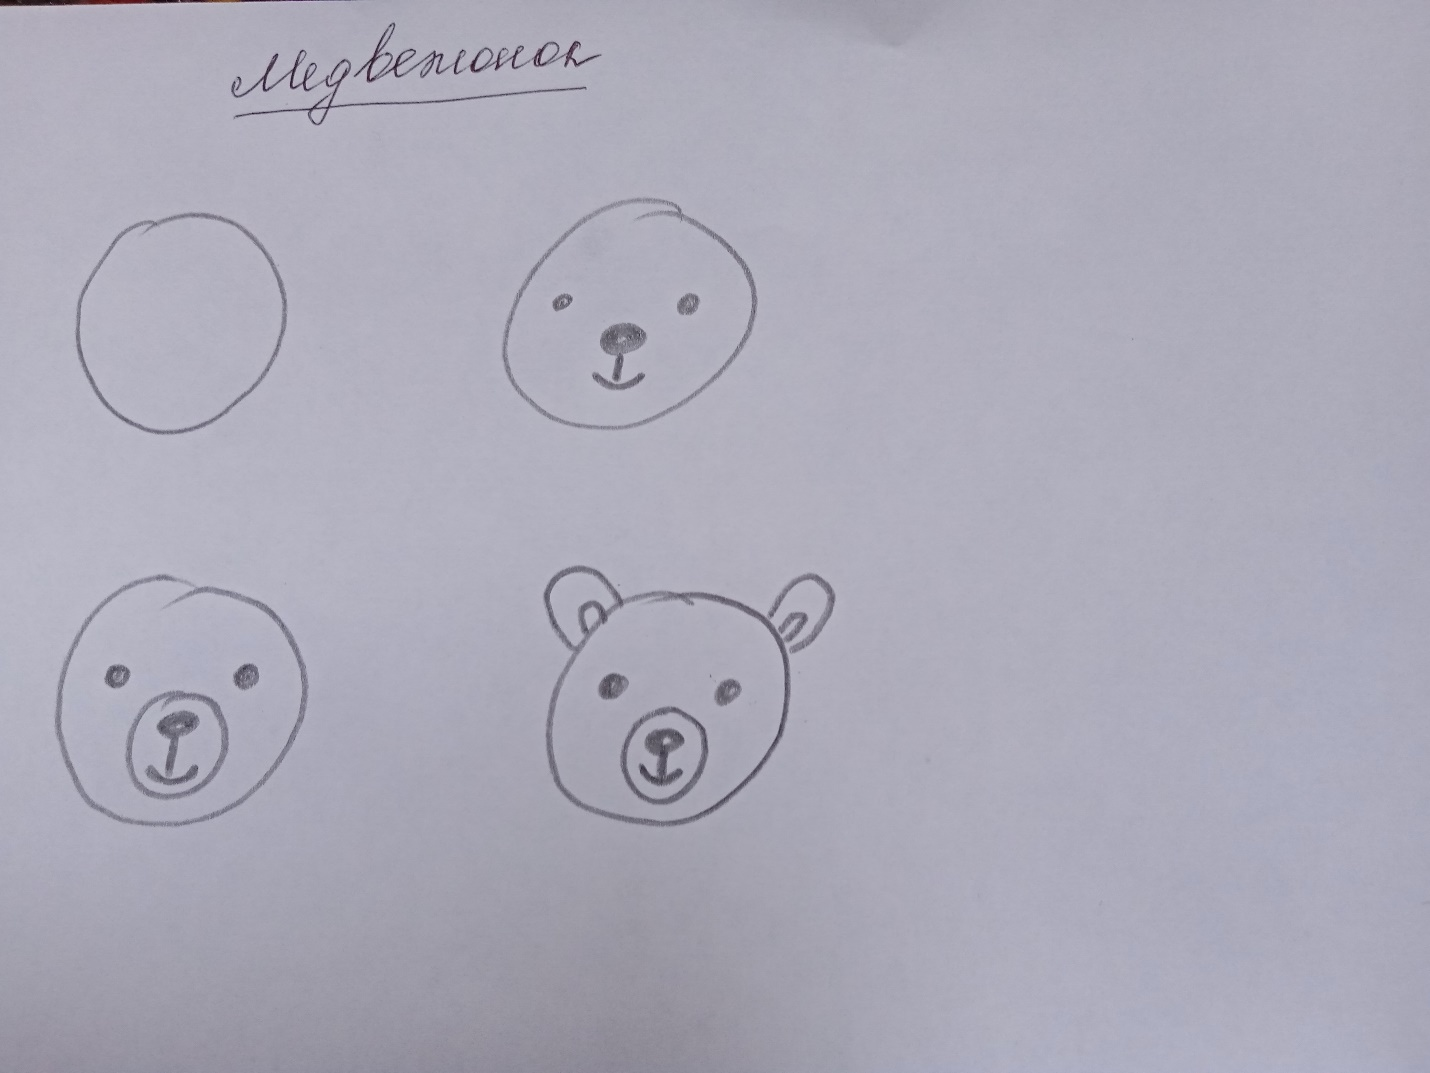 Медвежонок